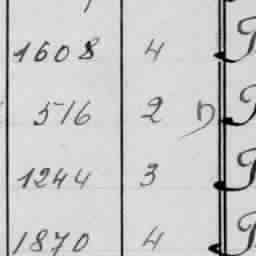 1608 4
516 2
1244 3
1870 4